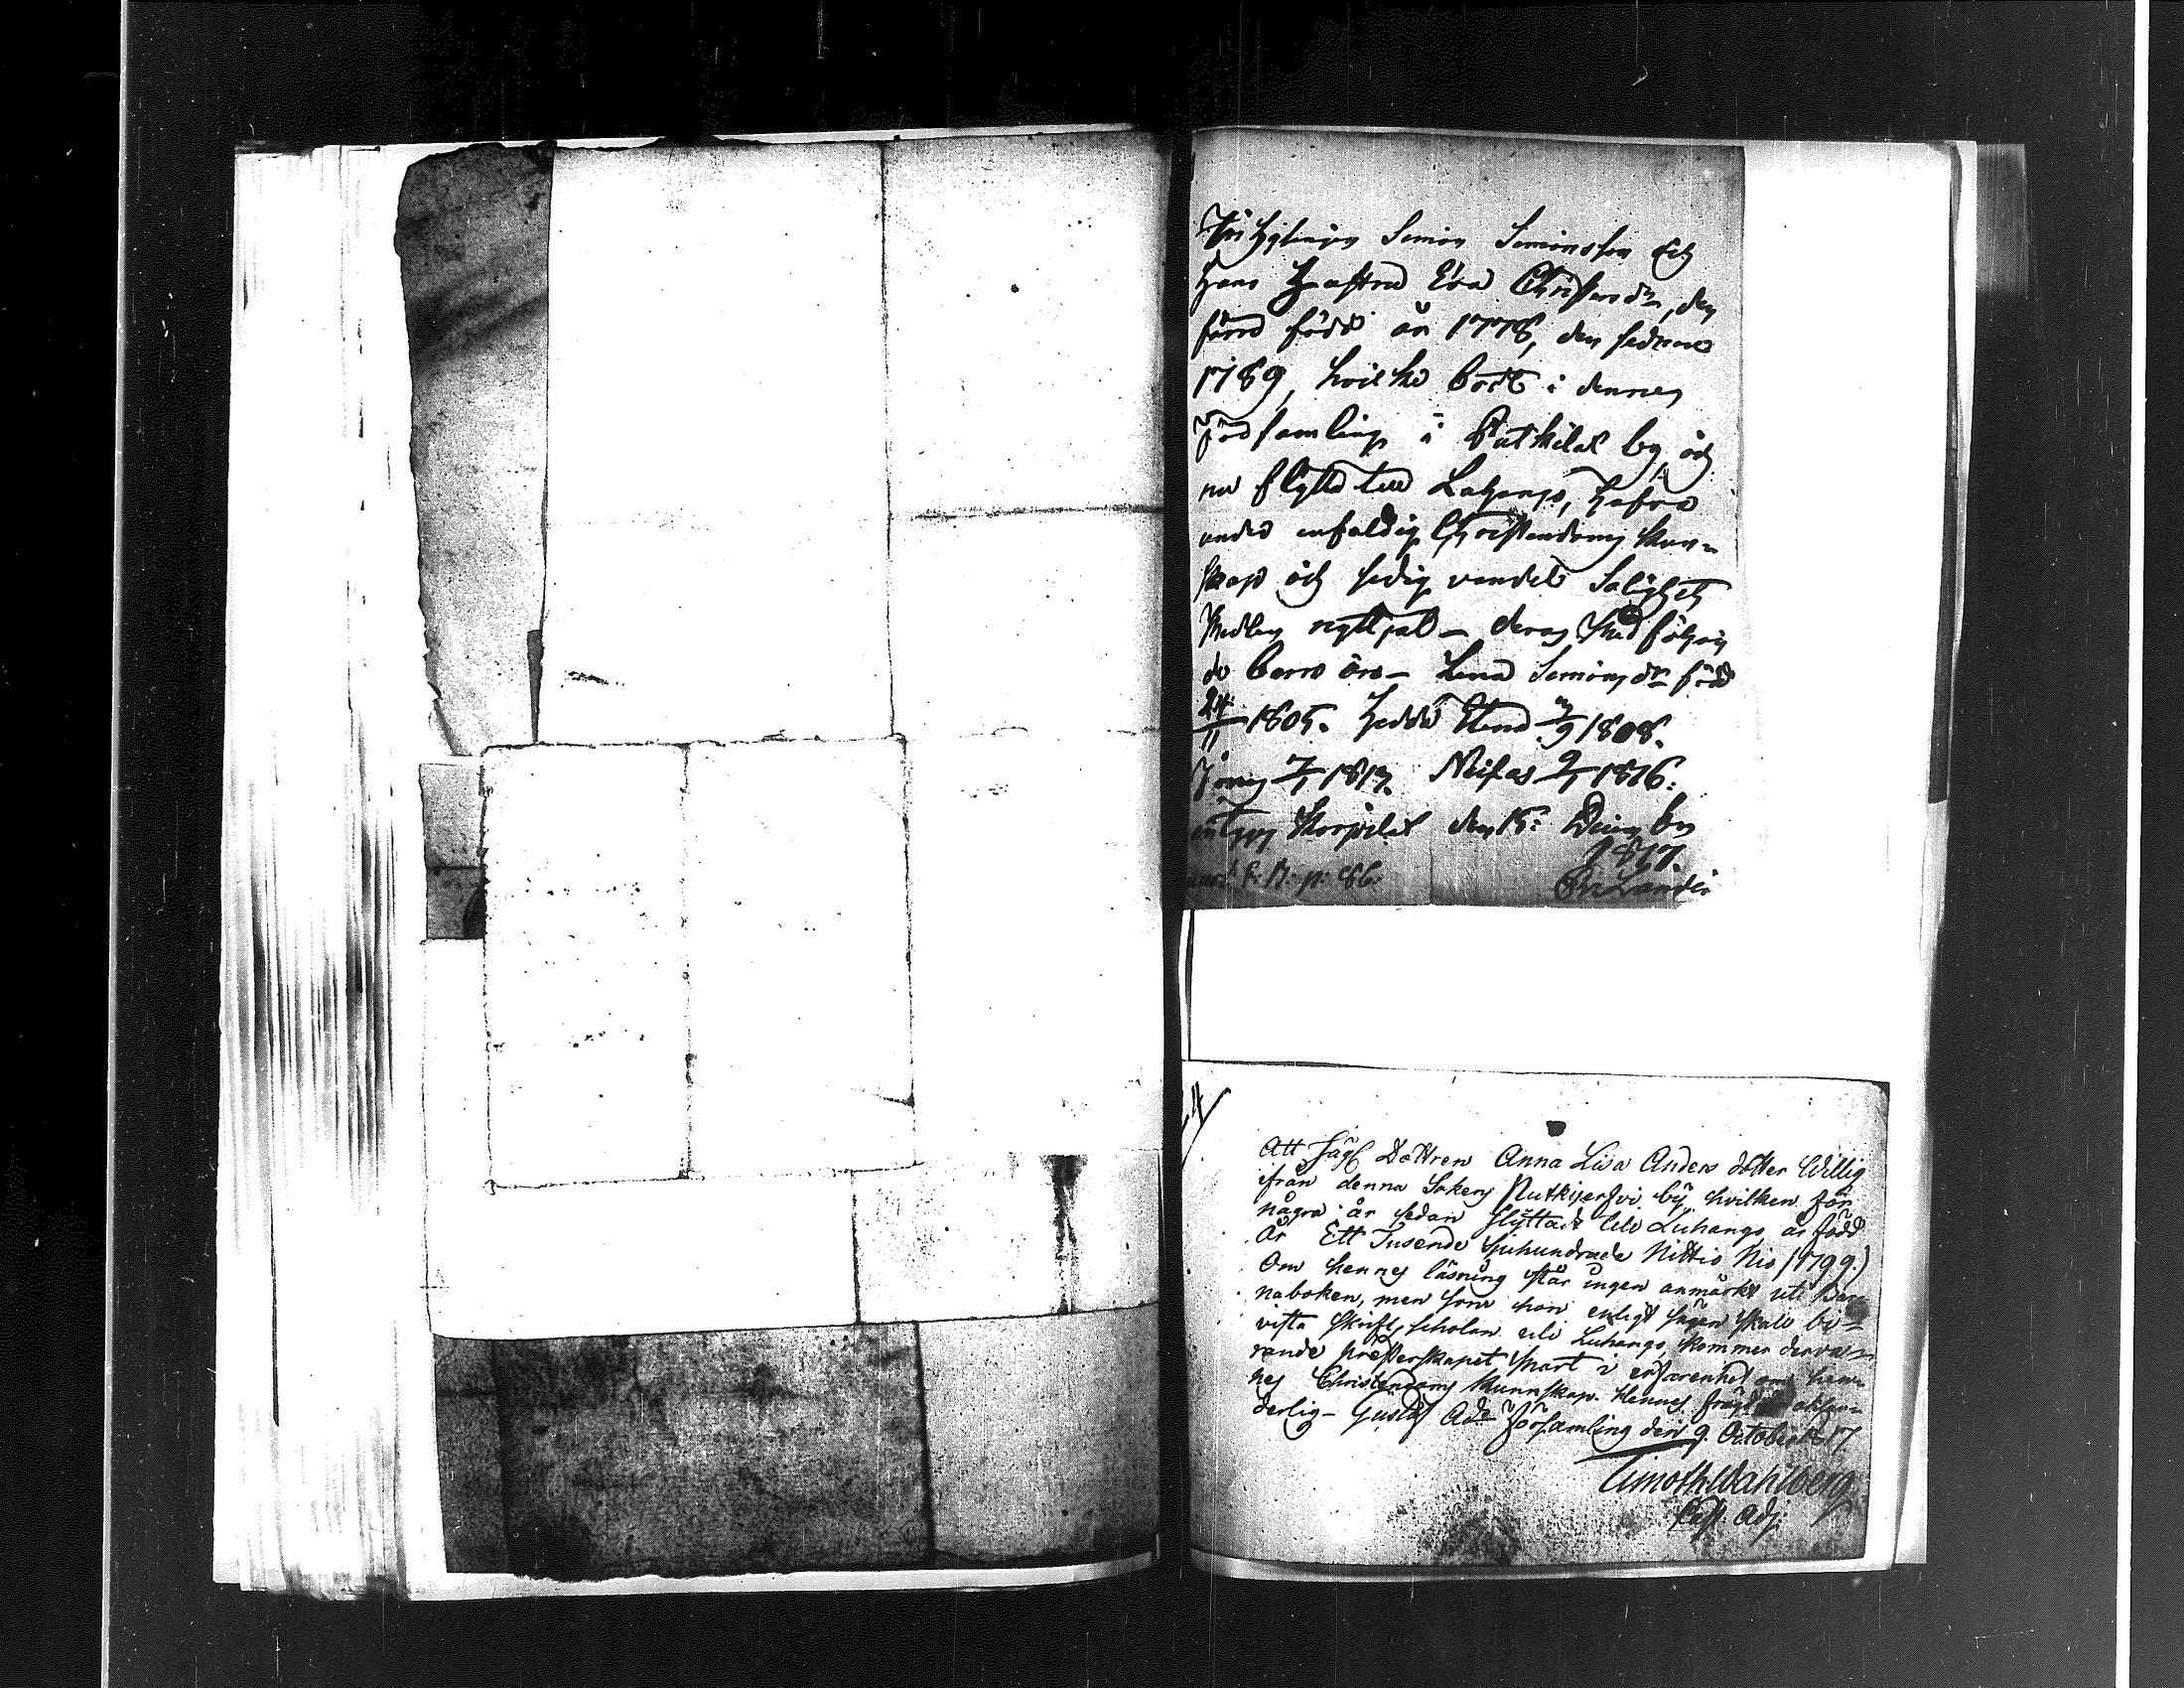 Inhysingen Simon Simonsson och
Hans Hustru Eva Christersdr, den
förre född år 1778, den sednare
1789, hvilka bodt i denna
Församling i Putkilax by, och
nu flytta till Luhango, hafva
under enfaldig Christendoms kun-
skap och sedig vandel Salighets
Medlen nyttjat – deras Med följan
de barn äro – Lena Simonsdr född
24/11 1805. Hedda Stina /9 1808.
7/1 181 9/1 1816.
intygar Korpilax den 15: Decemb
1817.
p: 86.
Att Jägl Dottren Anna Lisa Anders dotter Willig
ifrån denna Sokens Rutkijerfvi by, hvilken för
några år sedan flyttade till Luhango, är född
År Ett Tusende Sjuhundrade Nittio Nio (1799.)
Om hennes läsning står ingen anmärkt uti Bar
naboken, men som hon enligt sägen skall bi-
vista Skriftscholan uti Luhango, kommer derva-
rande Presterskapet snart i erfarenhet om hen-
nes Christendoms kunnskap. Hennes frägd
derlig – Gustaf Ads Församling den 9. October 1817
Timoth. Wahlberg
Past. Adj.